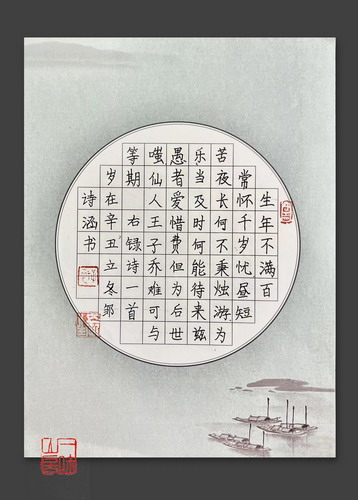 生年不满百
常怀千岁忧昼短
苦夜长何不秉烛游为
乐当及时何能待来兹
愚者爱惜费但为后世
嗤仙人王子乔难可与
等期 右録诗一首
岁在辛丑立冬邹
诗涵书